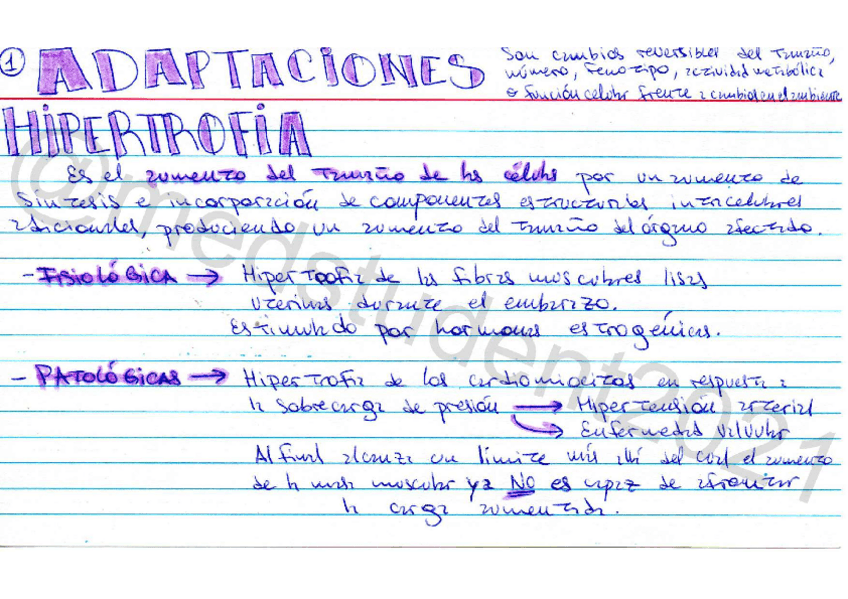 1
ADAPTACIONES
Son cambios reversibles del tamaño,
número, fenotipo, actividad metabólica
o función celular frente a cambios en el ambiente
HIPERTROFIA
Es el aumento del tamaño de las células por un aumento de
síntesis e incorporación de componentes estructurales intracelulares
adicionales, produciendo un aumento del tamaño del órgano afectado.
- FISIOLÓGICA → Hipertrofia de las fibras musculares lisas
uterinas durante el embarazo.
Estimulado por hormonas estrogénicas.
- PATOLÓGICAS → Hipertrofia de los cardiomiocitos en respuesta a
la sobrecarga de presión → Hipertensión arterial
→ Enfermedad valvular
Al final alcanza un límite más allá del cual el aumento
de la masa muscular ya NO es capaz de afrontar
la carga aumentada.
@medstudent2021